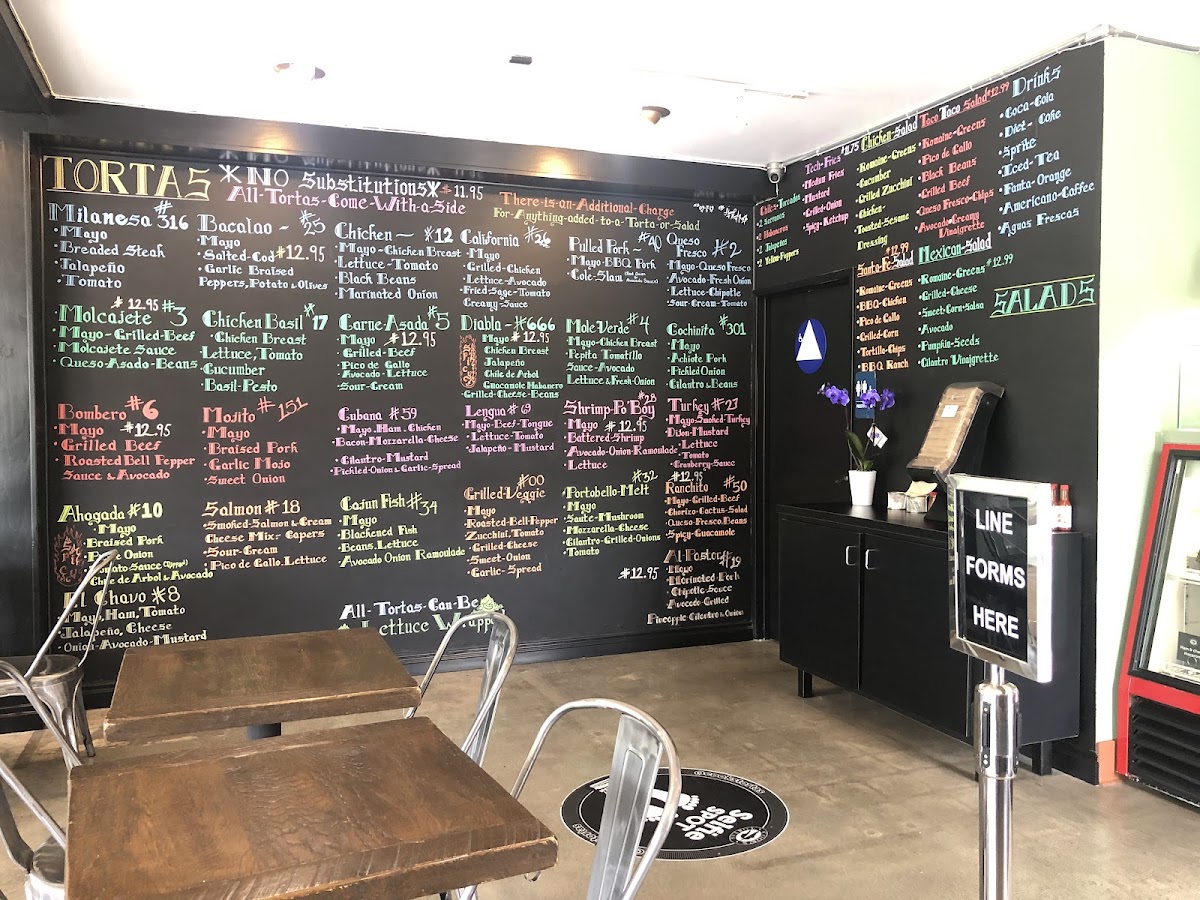 TORTAS
*NO Substitutions* $11.95
All-Tortas-Come-With-a-Side
There-is-an-Additional-Charge
For-Anything-added-to-a-Torta-or-Salad
Milanesa #316
·Mayo
·Breaded Steak
·Jalapeño
·Tomato
Bacalao - #25
·Mayo
·Salted-Cod $12.95
·Garlic Braised
Peppers, Potato & Olives
Chicken - #12
·Mayo-Chicken Breast
·Lettuce-Tomato
·Black Beans
·Marinated Onion
California #26
·Mayo
·Grilled-Chicken
·Lettuce-Avocado
·Fried-Sage-Tomato
·Creamy Sauce
Pulled Pork- #40
·Mayo-BBQ Pork
·Cole-Slaw
Queso
Fresco #2
·Mayo-Queso Fresco
·Avocado-Fresh Onion
·Lettuce-Chipotle
·Sour-Cream-Tomato
$12.95
Molcajete #3
·Mayo-Grilled-Beef
·Molcajete Sauce
·Queso-Asado-Beans
Chicken Basil #17
·Chicken Breast
·Lettuce, Tomato
·Cucumber
·Basil-Pesto
Carne Asada #5
·Mayo $12.95
·Grilled-Beef
·Pico de Gallo
·Avocado-Lettuce
·Sour-Cream
Diabla - #666
·Mayo $12.95
Chicken Breast
Jalapeño
Chile de Arbol
Guacamole Habanero
·Grilled-Cheese-Beans
Mole Verde #4
·Mayo-Chicken Breast
·Pepita Tomatillo
Sauce-Avocado
Lettuce & Fresh-Onion
Cochinita #301
·Mayo
·Achiote Pork
·Pickled Onion
·Cilantro & Beans
Bombero #6
·Mayo $12.95
·Grilled Beef
·Roasted Bell Pepper
Sauce & Avocado
Mojito #151
·Mayo
·Braised Pork
·Garlic Mojo
·Sweet Onion
Cubana #59
·Mayo, Ham, Chicken
·Bacon-Mozzarella-Cheese
·Cilantro-Mustard
·Pickled-Onion & Garlic-Spread
Lengua #69
·Mayo-Beef-Tongue
·Lettuce-Tomato
·Jalapeño-Mustard
Shrimp-Po'Boy #28
·Mayo $12.95
·Battered-Shrimp
·Avocado-Onion-Ramoulade
·Lettuce
Turkey #27
·Mayo-Smoked-Turkey
·Dijon-Mustard
·Lettuce
·Tomato
·Cranberry-Sauce
Ahogada #10
·Mayo
·Braised Pork
Onion
Tomato-Sauce
Chile de Arbol & Avocado
SPICY
Salmon #18
·Smoked-Salmon & Cream
Cheese Mix-Capers
·Sour-Cream
·Pico de Gallo, Lettuce
Cajun Fish #34
·Mayo
·Blackened Fish
·Beans, Lettuce
·Avocado Onion Ramoulade
Grilled-Veggie #00
·Mayo
·Roasted-Bell-Pepper
·Zucchini, Tomato
·Grilled-Cheese
·Sweet-Onion
·Garlic-Spread
Portobello-Melt #32
·Mayo
·Saute-Mushroom
·Mozzarella-Cheese
·Cilantro-Grilled-Onions
·Tomato
$12.95
Ranchito #50
·Mayo-Grilled-Beef
·Chorizo-Cactus-Salad
·Queso-Fresco, Beans
·Spicy-Guacamole
El Chavo #8
·Mayo, Ham, Tomato
·Jalapeño, Cheese
·Onion-Avocado-Mustard
All-Tortas-Can-Be
Lettuce Wrapp
$12.95
Al-Pastor #19
·Mayo
·Marinated-Pork
·Chipotle-Sauce
·Avocado-Grilled
Pineapple-Cilantro & Onion
Chiles-Toreados
2 Serranos
2 Habaneros
2 Jalapeños
2 Yellow-Peppers
Tech-Fries
·Medium Fries
·Mustard
·Grilled-Onion
·Spicy-Ketchup
Chicken-Salad
·Romaine-Greens
·Cucumber
·Grilled Zucchini
·Chicken
·Toasted-Sesame
Dressing
Taco Taco Salad $12.99
·Romaine-Greens
·Pico de Gallo
·Black Beans
·Grilled Beef
·Queso Fresco-Chips
·Avocado Creamy
Vinaigrette
Drinks
·Coca-Cola
·Diet-Coke
·Sprite
·Iced-Tea
·Fanta-Orange
·Americano-Coffee
·Aguas Frescas
$12.99
Santa-Fe Salad
·Romaine-Greens
·BBQ-Chicken
·Pico de Gallo
·Grilled-Corn
·Tortilla-Chips
·BBQ Ranch
Mexican-Salad
·Romaine-Greens $12.99
·Grilled-Cheese
·Sweet Corn-Salsa
·Avocado
·Pumpkin-Seeds
·Cilantro Vinaigrette
SALADS
LINE
FORMS
HERE
Selfie
SPOT